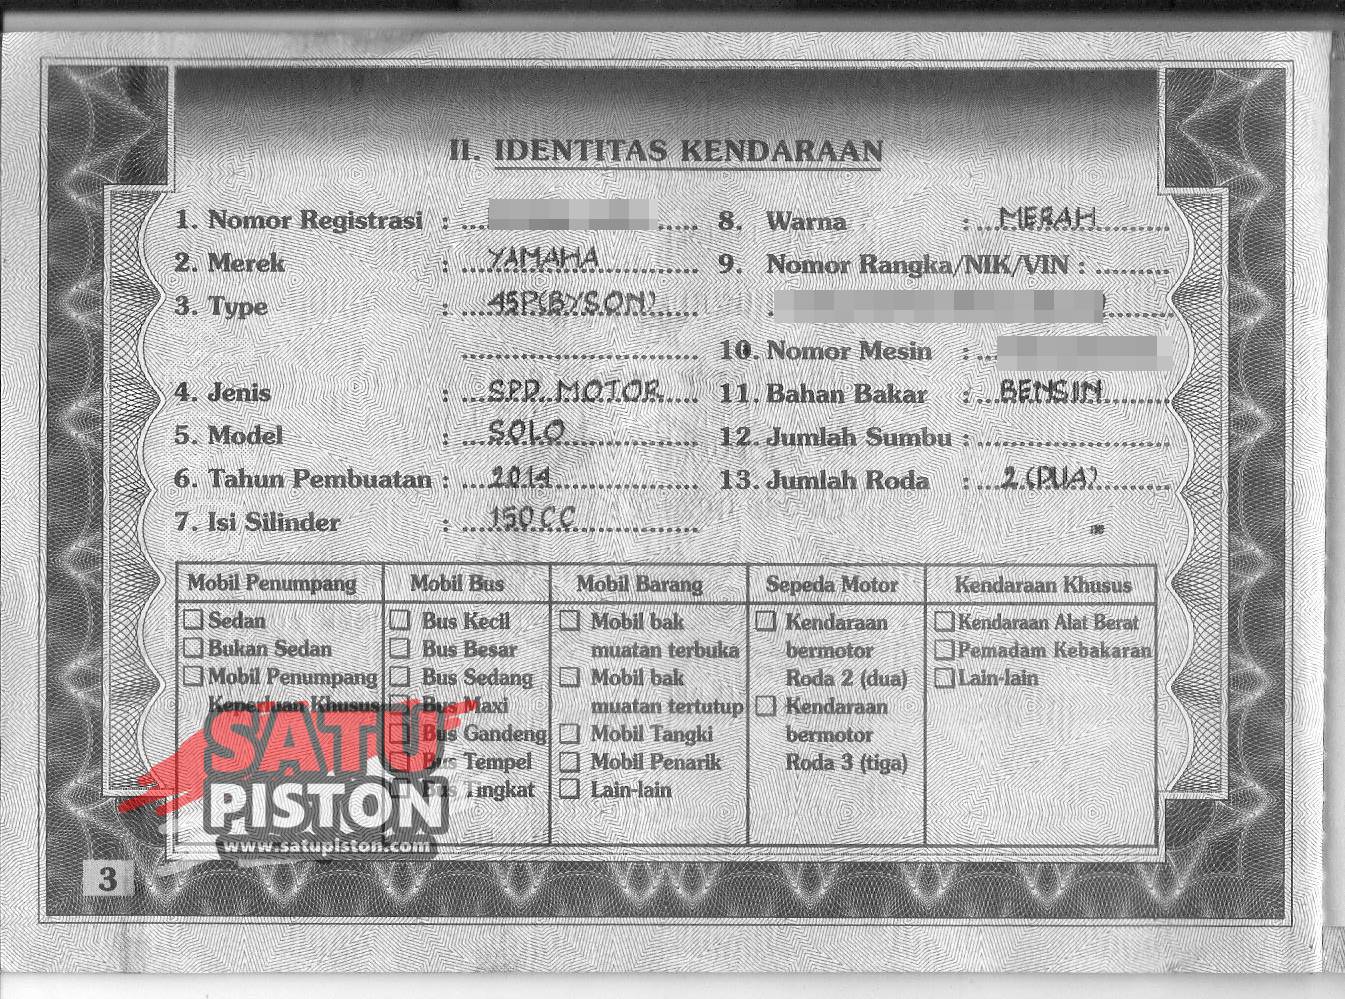 II. IDENTITAS KENDARAAN
1. Nomor Registrasi :
2. Merek : YAMAHA
3. Type : 45P(BYSON)
4. Jenis : SPD. MOTOR
5. Model : SOLO
6. Tahun Pembuatan : 2014
7. Isi Silinder : 150 CC
8. Warna : MERAH
9. Nomor Rangka/NIK/VIN :
10. Nomor Mesin :
11. Bahan Bakar : BENSIN
12. Jumlah Sumbu :
13. Jumlah Roda : 2 (DUA)
Mobil Penumpang
Sedan
Bukan Sedan
Mobil Penumpang
Keperluan Khusus
Mobil Bus
Bus Kecil
Bus Besar
Bus Sedang
Bus Maxi
Bus Gandeng
Bus Tempel
Bus Tingkat
Mobil Barang
Mobil bak
muatan terbuka
Mobil bak
muatan tertutup
Mobil Tangki
Mobil Penarik
Lain-lain
Sepeda Motor
Kendaraan
bermotor
Roda 2 (dua)
Kendaraan
bermotor
Roda 3 (tiga)
Kendaraan Khusus
Kendaraan Alat Berat
Pemadam Kebakaran
Lain-lain
SATU
PISTON
www.satupiston.com
3